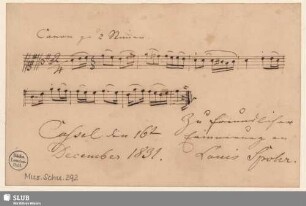 Canon zu 2 Stimmen
Zu freundlicher
Erinnerung an
Louis Spohr.
Cassel den 16ten
December 1831.
Mus.Schu.292
SLUB